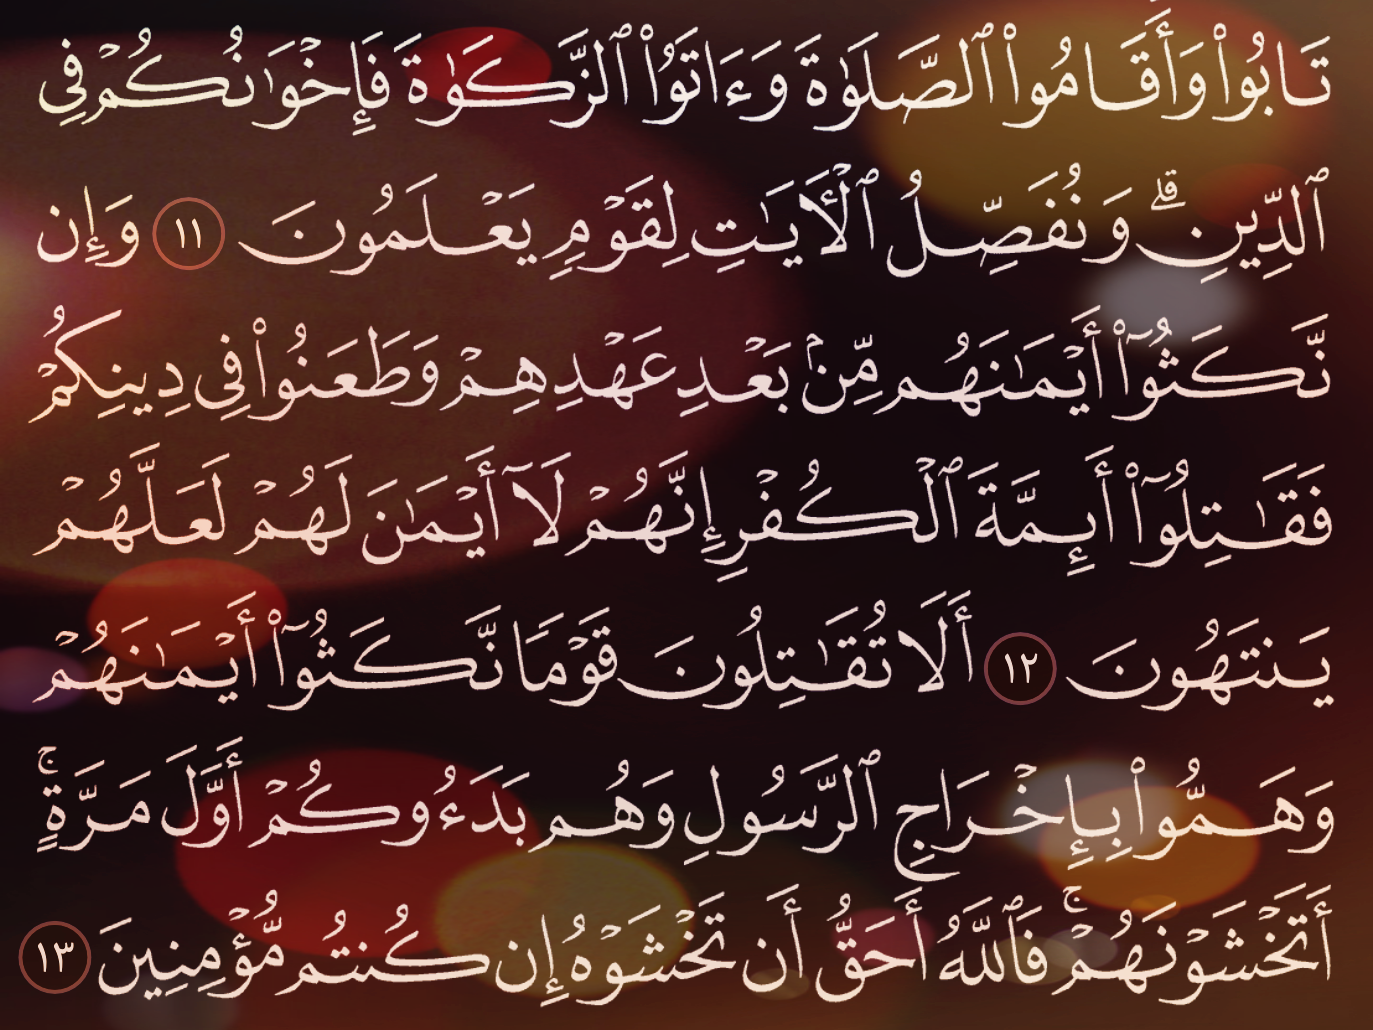 تَابُوا۟ وَأَقَامُوا۟ ٱلصَّلَوٰةَ وَءَاتَوُا۟ ٱلزَّكَوٰةَ فَإِخْوَٰنُكُمْ فِى
ٱلدِّينِ ۗ وَنُفَصِّلُ ٱلْـَٔايَـٰتِ لِقَوْمٍ يَعْلَمُونَ ١١ وَإِن
نَّكَثُوٓا۟ أَيْمَـٰنَهُم مِّنۢ بَعْدِ عَهْدِهِمْ وَطَعَنُوا۟ فِى دِينِكُمْ
فَقَـٰتِلُوٓا۟ أَئِمَّةَ ٱلْكُفْرِ إِنَّهُمْ لَآ أَيْمَـٰنَ لَهُمْ لَعَلَّهُمْ
يَنتَهُونَ ١٢ أَلَا تُقَـٰتِلُونَ قَوْمًا نَّكَثُوٓا۟ أَيْمَـٰنَهُمْ
وَهَمُّوا۟ بِإِخْرَاجِ ٱلرَّسُولِ وَهُم بَدَءُوكُمْ أَوَّلَ مَرَّةٍ ۚ
أَتَخْشَوْنَهُمْ ۚ فَٱللَّهُ أَحَقُّ أَن تَخْشَوْهُ إِن كُنتُم مُّؤْمِنِينَ ١٣